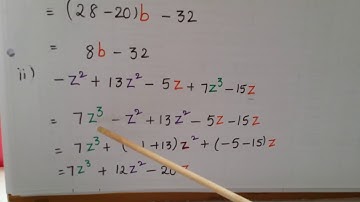 = (28-20)b - 32
= 8b - 32
ii)
-z² + 13z² - 5z + 7z³ - 15z
= 7z³ - z² + 13z² - 5z - 15z
= 7z³ + (-1+13)z² + (-5-15)z
= 7z³ + 12z² - 20z